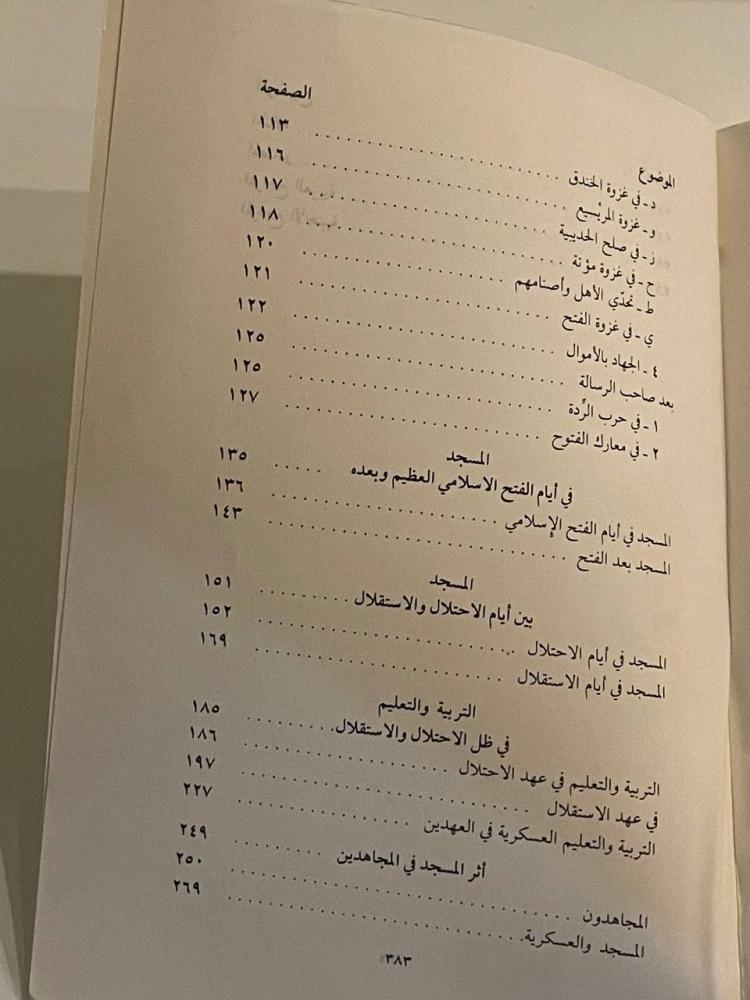 الموضوع الصفحة
د - في غزوة الخندق ١١٣
و - غزوة المريْسيع ١١٦
ز - في صلح الحديبية ١١٧
ح - في غزوة مؤتة ١١٨
ط - تحدّي الأهل وأصنامهم ١٢٠
ي - في غزوة الفتح ١٢١
٤ - الجهاد بالأموال ١٢٢
بعد صاحب الرسالة ١٢٥
١ - في حرب الرِّدة ١٢٥
٢ - في معارك الفتوح ١٢٧
المسجد
في أيام الفتح الاسلامي العظيم وبعده ١٣٥
المسجد في أيام الفتح الإسلامي ١٣٦
المسجد بعد الفتح ١٤٣
المسجد
بين أيام الاحتلال والاستقلال ١٥١
المسجد في أيام الاحتلال ١٥٢
المسجد في أيام الاستقلال ١٦٩
التربية والتعليم
في ظل الاحتلال والاستقلال ١٨٥
التربية والتعليم في عهد الاحتلال ١٨٦
في عهد الاستقلال ١٩٧
التربية والتعليم العسكرية في العهدين ٢٢٧
أثر المسجد في المجاهدين ٢٤٩
المجاهدون ٢٥٠
المسجد والعسكرية ٢٦٩
٣٨٣